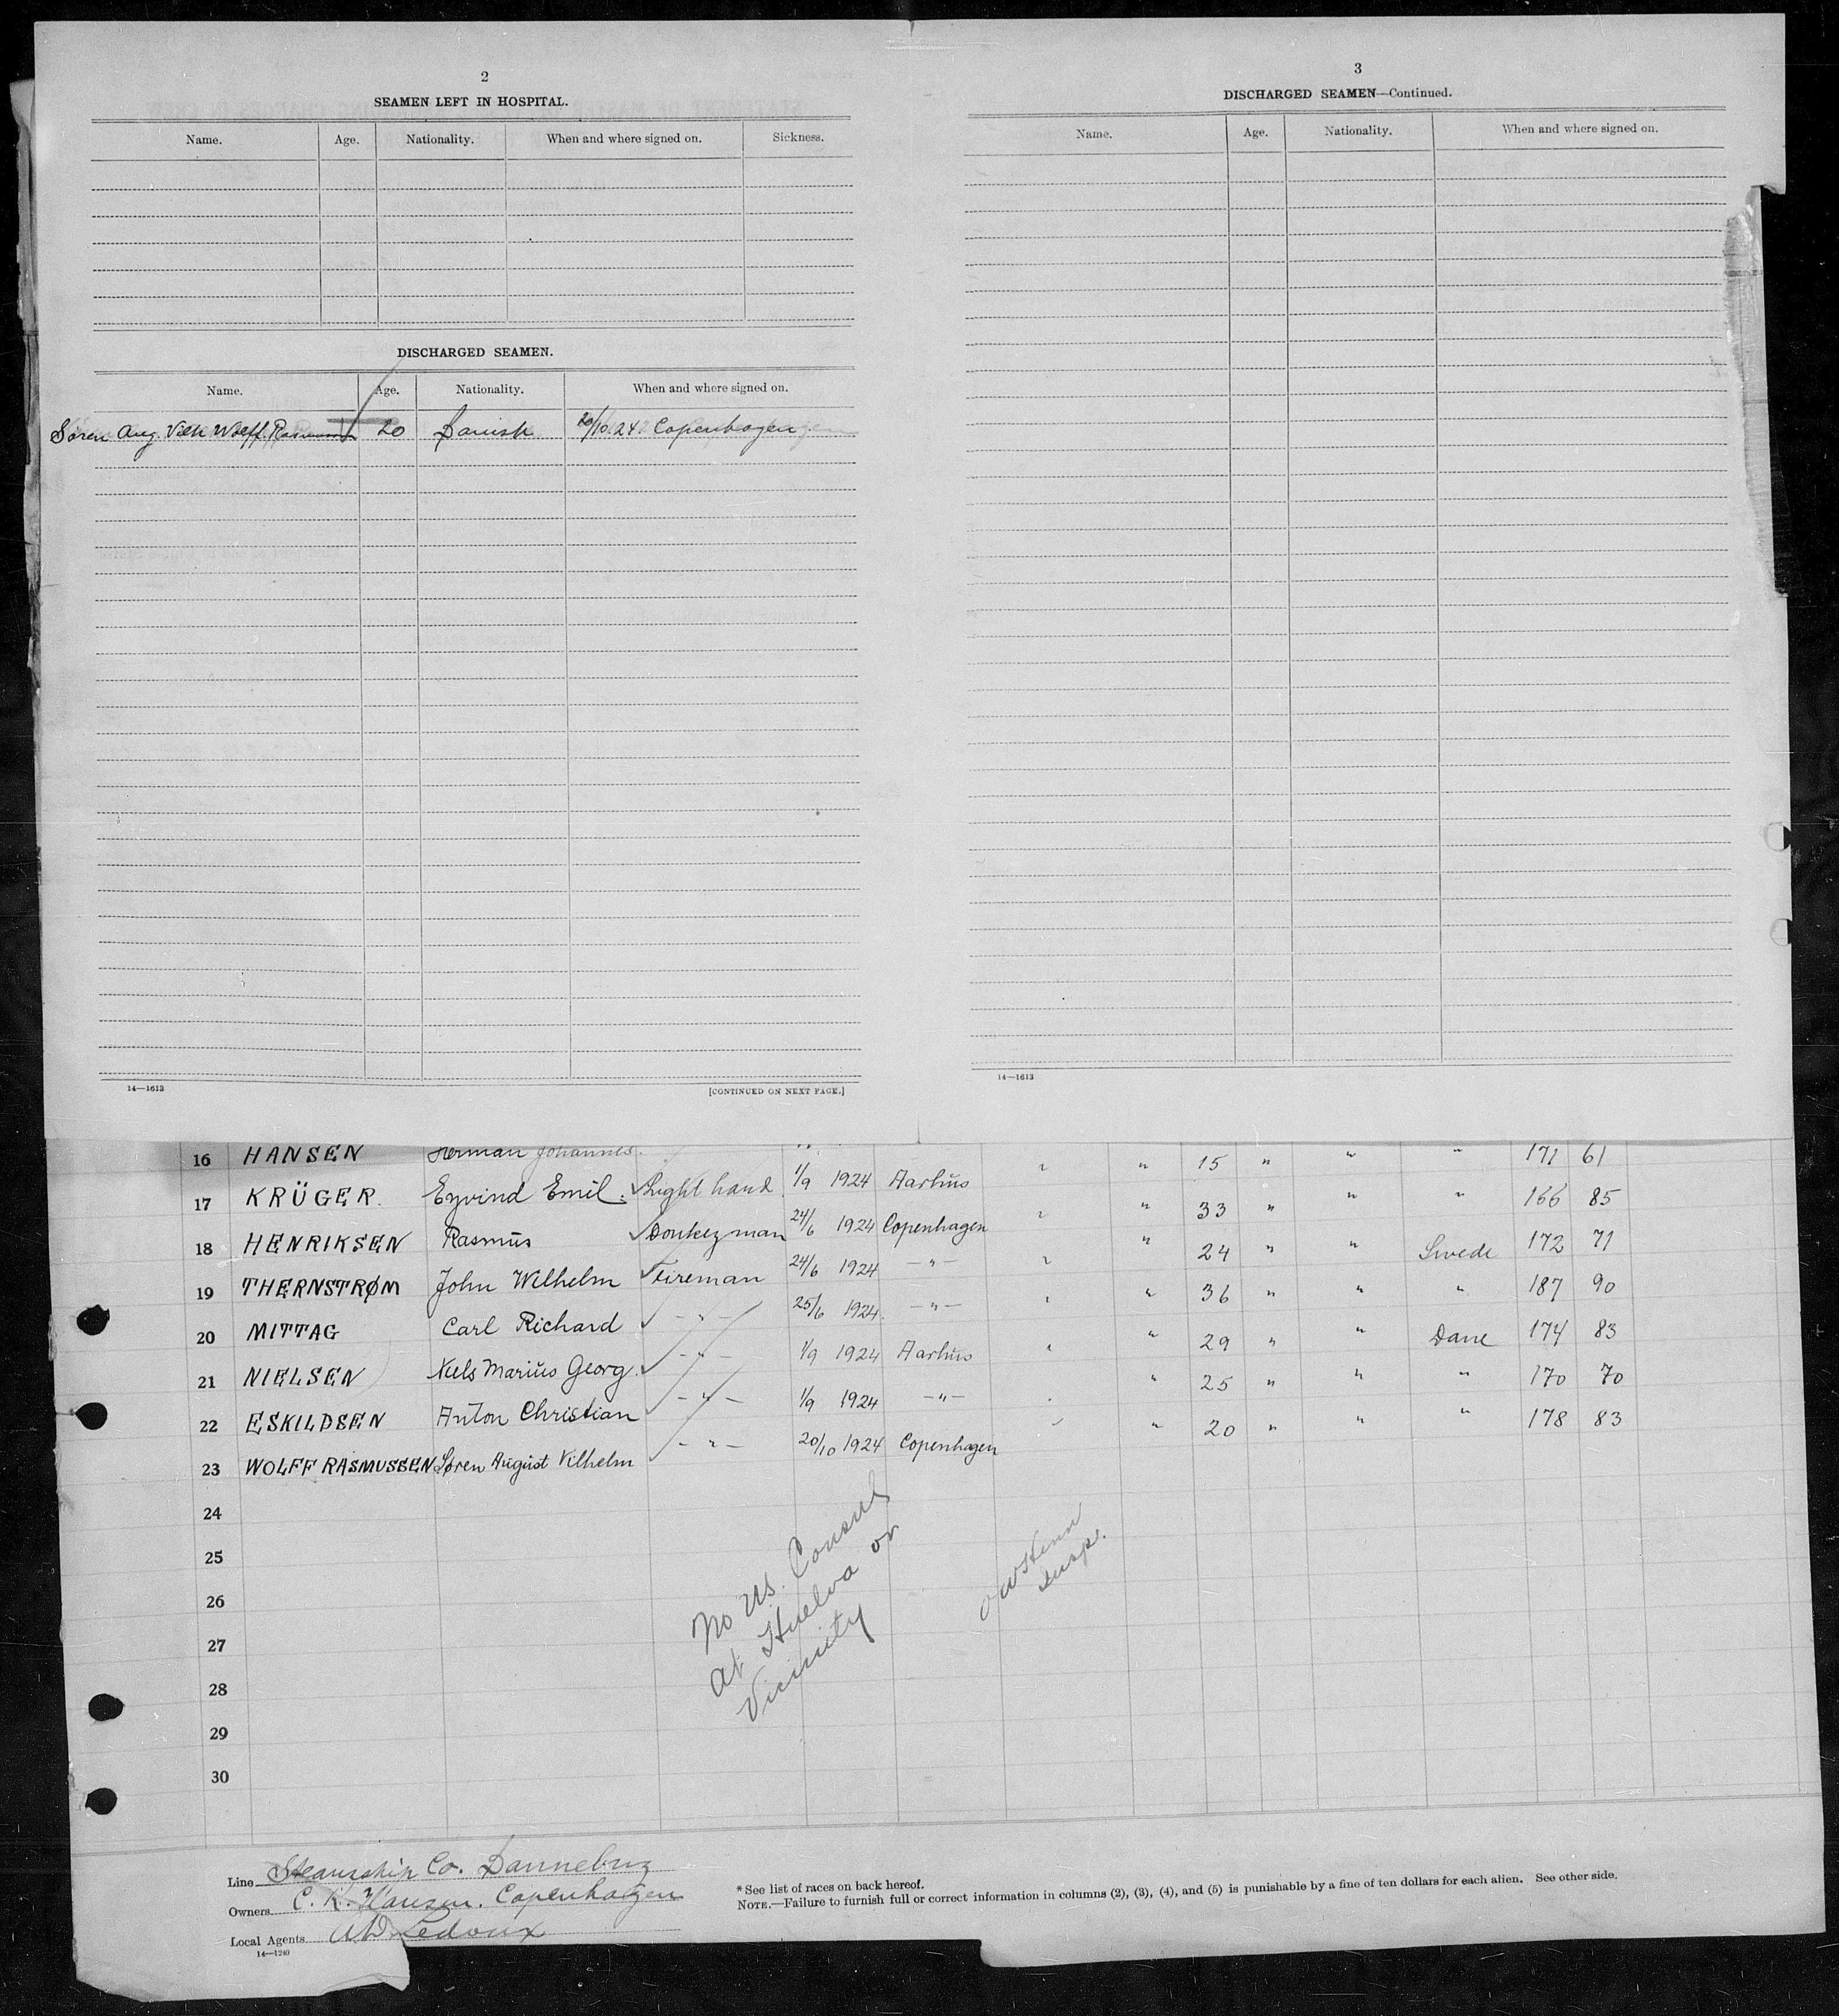 2
SEAMEN LEFT IN HOSPITAL.
Name. Age. Nationality. When and where signed on. Sickness.
DISCHARGED SEAMEN.
Name. Age. Nationality. When and where signed on.
Søren Aug. Vilh Wolff. Rasmussen 20 Danish 20/10.24 Copenhagen
14—1613 [CONTINUED ON NEXT PAGE.]
3
DISCHARGED SEAMEN—Continued.
Name. Age. Nationality. When and where signed on.
14—1613
16 HANSEN Herman Johannes. " " 15 " " " 171 61
17 KRÜGER. Eyvind Emil. Right hand 1/9 1924 Aarhus " " 33 " " " 166 85
18 HENRIKSEN Rasmus Donkeyman 24/6 1924 Copenhagen " " 24 " " Swede 172 71
19 THERNSTRØM John Wilhelm Fireman 24/6 1924 —"— " " 36 " " " 187 90
20 MITTAG Carl Richard —"— 25/6 1924 —"— " " 29 " " Dane 174 83
21 NIELSEN Niels Marius Georg. —"— 1/9 1924 Aarhus " " 25 " " " 170 70
22 ESKILDSEN Anton Christian —"— 1/9 1924 —"— " " 20 " " " 178 83
23 WOLFF RASMUSSEN Søren August Vilhelm —"— 20/10 1924 Copenhagen
24
25
26
27
28
29
30
No U.S. Consul
at Huelva or
Vicinity
Insp.
Line Steamship Co. Dannebrog
Owners C. K. Hansen. Copenhagen
Local Agents Ledoux
14—1240
* See list of races on back hereof.
NOTE.—Failure to furnish full or correct information in columns (2), (3), (4), and (5) is punishable by a fine of ten dollars for each alien. See other side.